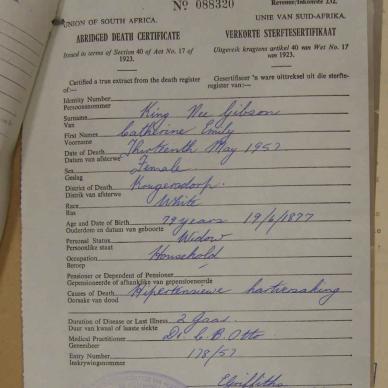 Nº 088320
Revenue/Inkomste 232.
UNION OF SOUTH AFRICA.
UNIE VAN SUID-AFRIKA.
ABRIDGED DEATH CERTIFICATE
VERKORTE STERFTESERTIFIKAAT
Issued in terms of Section 40 of Act No. 17 of 1923.
Uitgereik kragtens artikel 40 van Wet No. 17 van 1923.
Certified a true extract from the death register of:—
Gesertifiseer 'n ware uittreksel uit die sterfteregister van:—
Identity Number
Persoonsnommer
Surname King Nee Gibson
Van
First Names Catherine Emily
Voorname
Date of Death Thirteenth May 1957
Datum van afsterwe
Sex Female
Geslag
District of Death Krugersdorp
Distrik van afsterwe
Race White
Ras
Age and Date of Birth 79 years 19/6/1877
Ouderdom en datum van geboorte
Personal Status Widow
Persoonlike staat
Occupation Household
Beroep
Pensioner or Dependent of Pensioner
Gepensioneerde of afhanklike van gepensioneerde
Causes of Death Hipertensiewe hartversaking
Oorsake van dood
Duration of Disease or Last Illness 2 Jaar
Duur van kwaal of laaste siekte
Medical Practitioner Dr. C. B. Otto
Geneesheer
Entry Number 178/57
Inskrywingsnommer
Griffiths